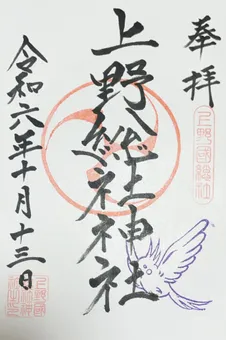 奉拝
上野総社神社
令和六年十月十三日